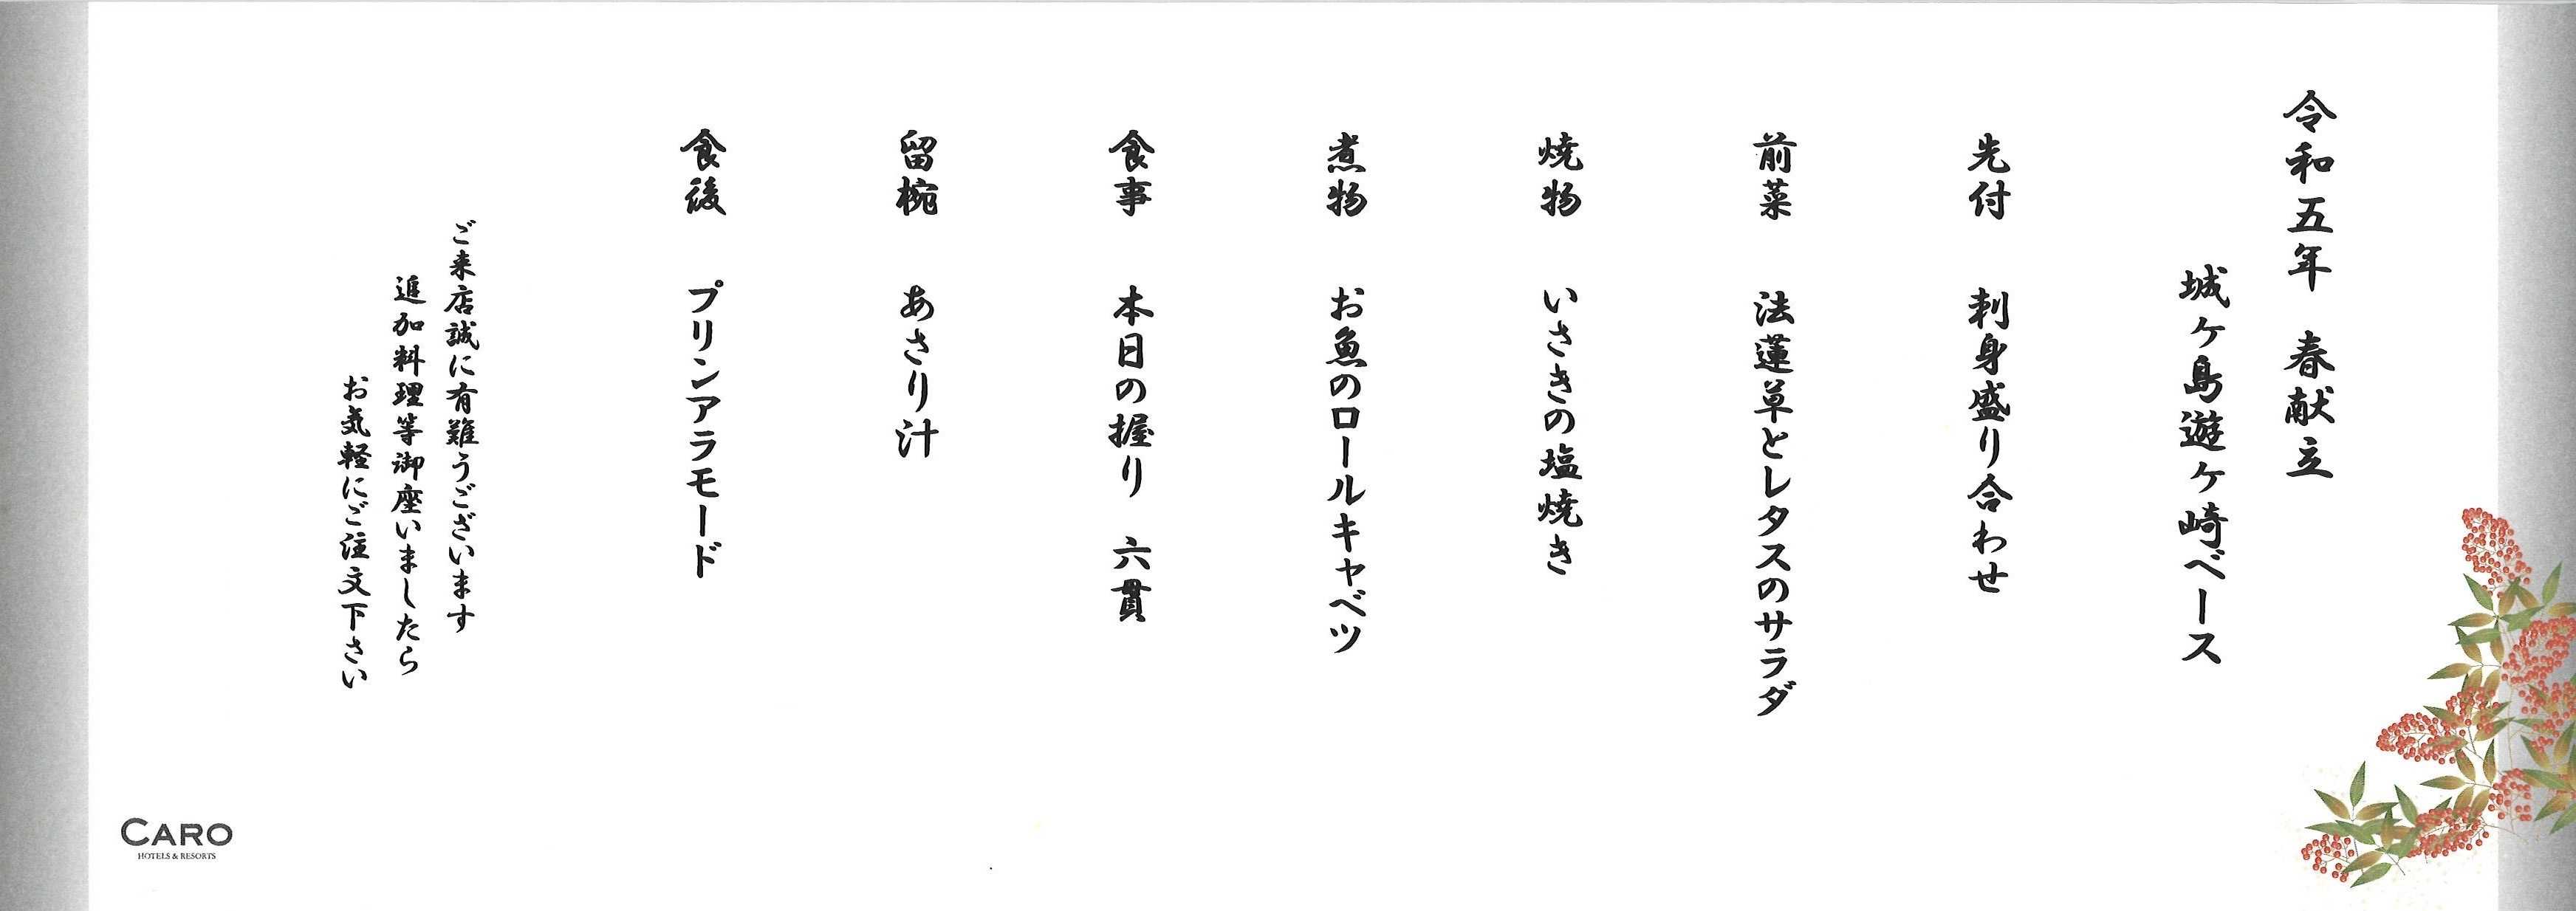 令和五年　春献立
城ヶ島遊ヶ崎ベース
先付　刺身盛り合わせ
前菜　法蓮草とレタスのサラダ
焼物　いさきの塩焼き
煮物　お魚のロールキャベツ
食事　本日の握り　六貫
留椀　あさり汁
食後　プリンアラモード
ご来店誠に有難うございます
追加料理等御座いましたら
お気軽にご注文下さい
CARO
HOTELS & RESORTS